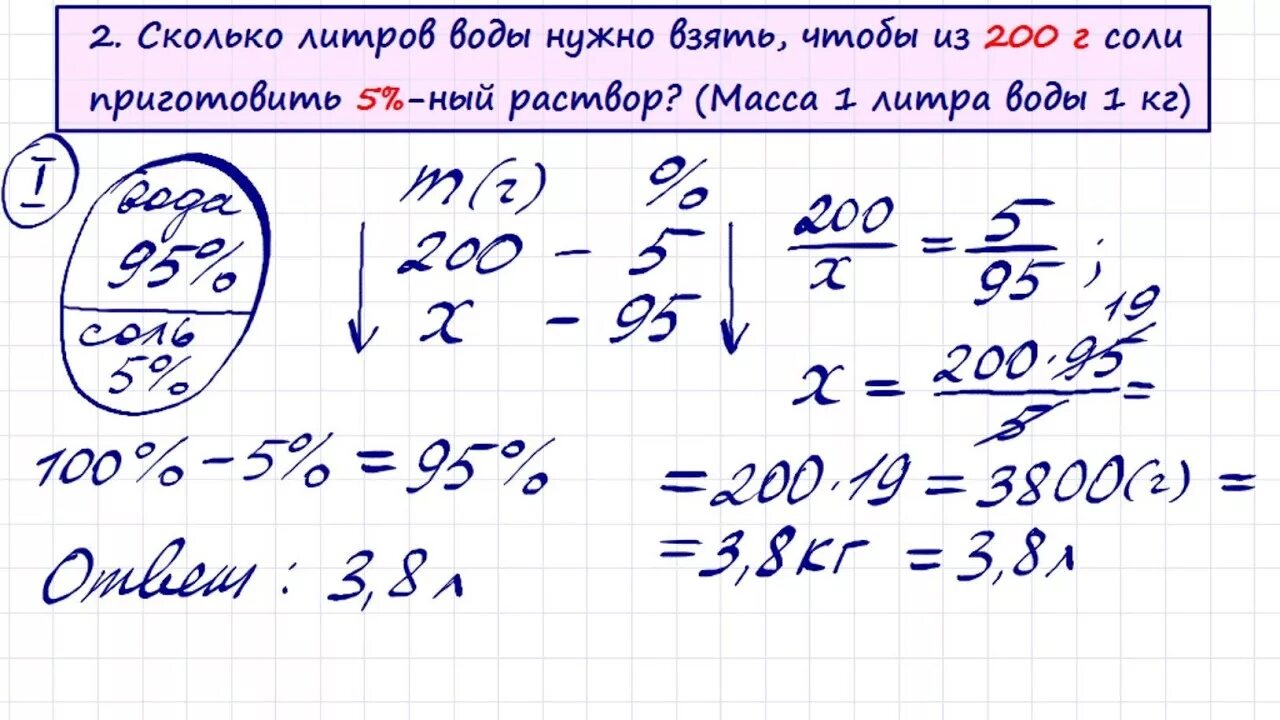 2. Сколько литров воды нужно взять, чтобы из 200 г соли
приготовить 5%-ный раствор? (Масса 1 литра воды 1 кг)
I
вода
95%
соль
5%
100% - 5% = 95%
m(г) %
200 - 5
x - 95
200/x = 5/95 ;
x = 200·95/5 =
19
= 200·19 = 3800(г) =
= 3,8кг = 3,8л
Ответ : 3,8л